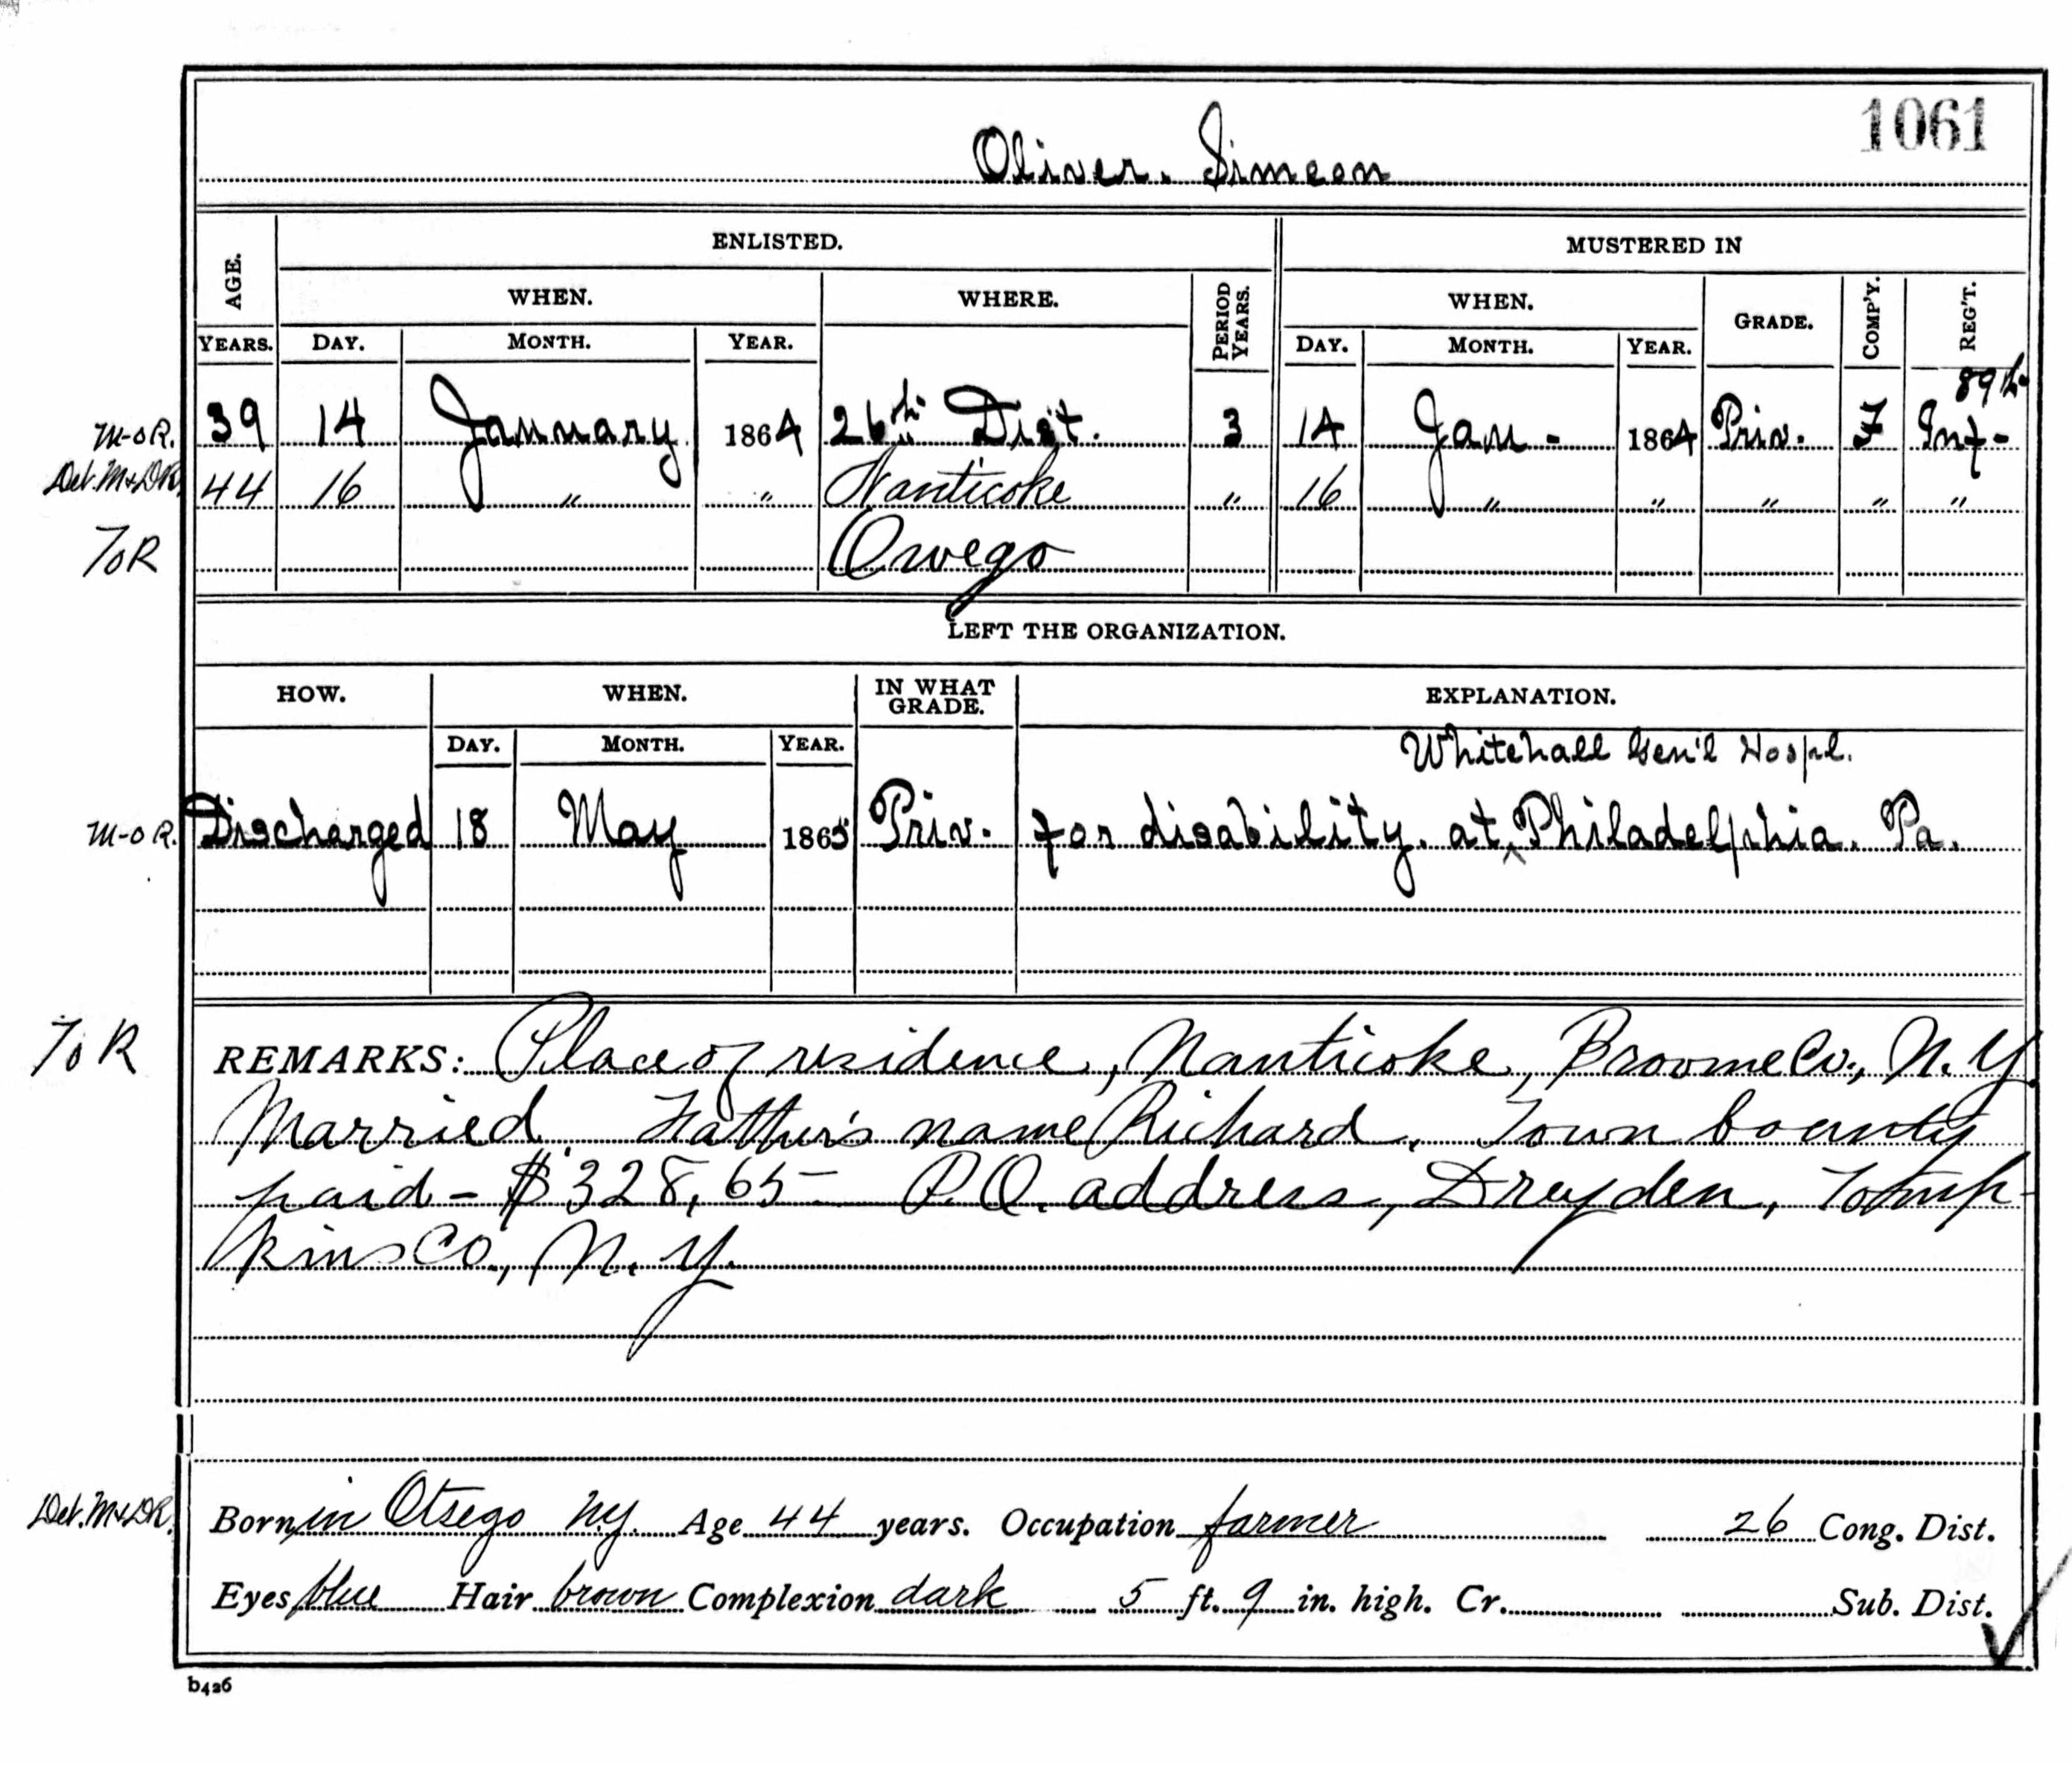 1061
Oliver. Simeon
ENLISTED. MUSTERED IN
AGE. WHEN. WHERE. PERIOD YEARS. WHEN. GRADE. COMP'Y. REG'T.
YEARS. DAY. MONTH. YEAR. DAY. MONTH. YEAR.
89th
M-O R. 39 14 January 1864 26th Dist. 3 14 Jan - 1864 Priv. F Inf-
Det. M & DR. 44 16 " " Nanticoke " 16 " " " " "
ToR Owego
LEFT THE ORGANIZATION.
HOW. WHEN. IN WHAT GRADE. EXPLANATION.
DAY. MONTH. YEAR.
Whitehall Gen'l Hospl.
M-O R. Discharged 18 May 1865 Priv. for disability. at ^ Philadelphia. Pa.
ToR REMARKS: Place of residence, Nanticoke, Broome Co., N.Y.
Married. Father's name Richard. Town bounty
paid - $328,65- P.O. address, Dryden, Tomp-
kins Co., N.Y.
Det. M & DR. Born in Otsego N.Y. Age 44 years. Occupation farmer 26 Cong. Dist.
Eyes blue Hair brown Complexion dark 5 ft. 9 in. high. Cr. Sub. Dist.
b426